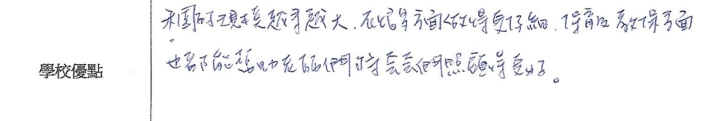 校園的規模越來越大,在培育方面做得更仔細,保育及教保方面
學校優點
也都能幫助老師們將寶寶們照顧得更好。